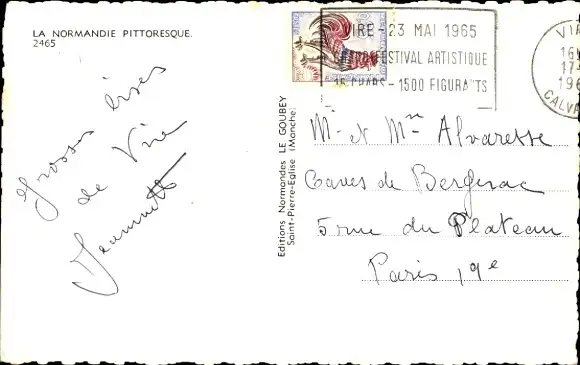 LA NORMANDIE PITTORESQUE.
2465
Grosses bises
de Vire
Jeannette
Editions Normandes LE GOUBEY
Saint-Pierre-Eglise (Manche)
VIRE - 23 MAI 1965
FESTIVAL ARTISTIQUE
15 CHARS - 1500 FIGURANTS
VIR
17-
196
CALVA
Mr et Mme Alvaresse
Caves de Bergerac
5 rue du Plateau
Paris 19e